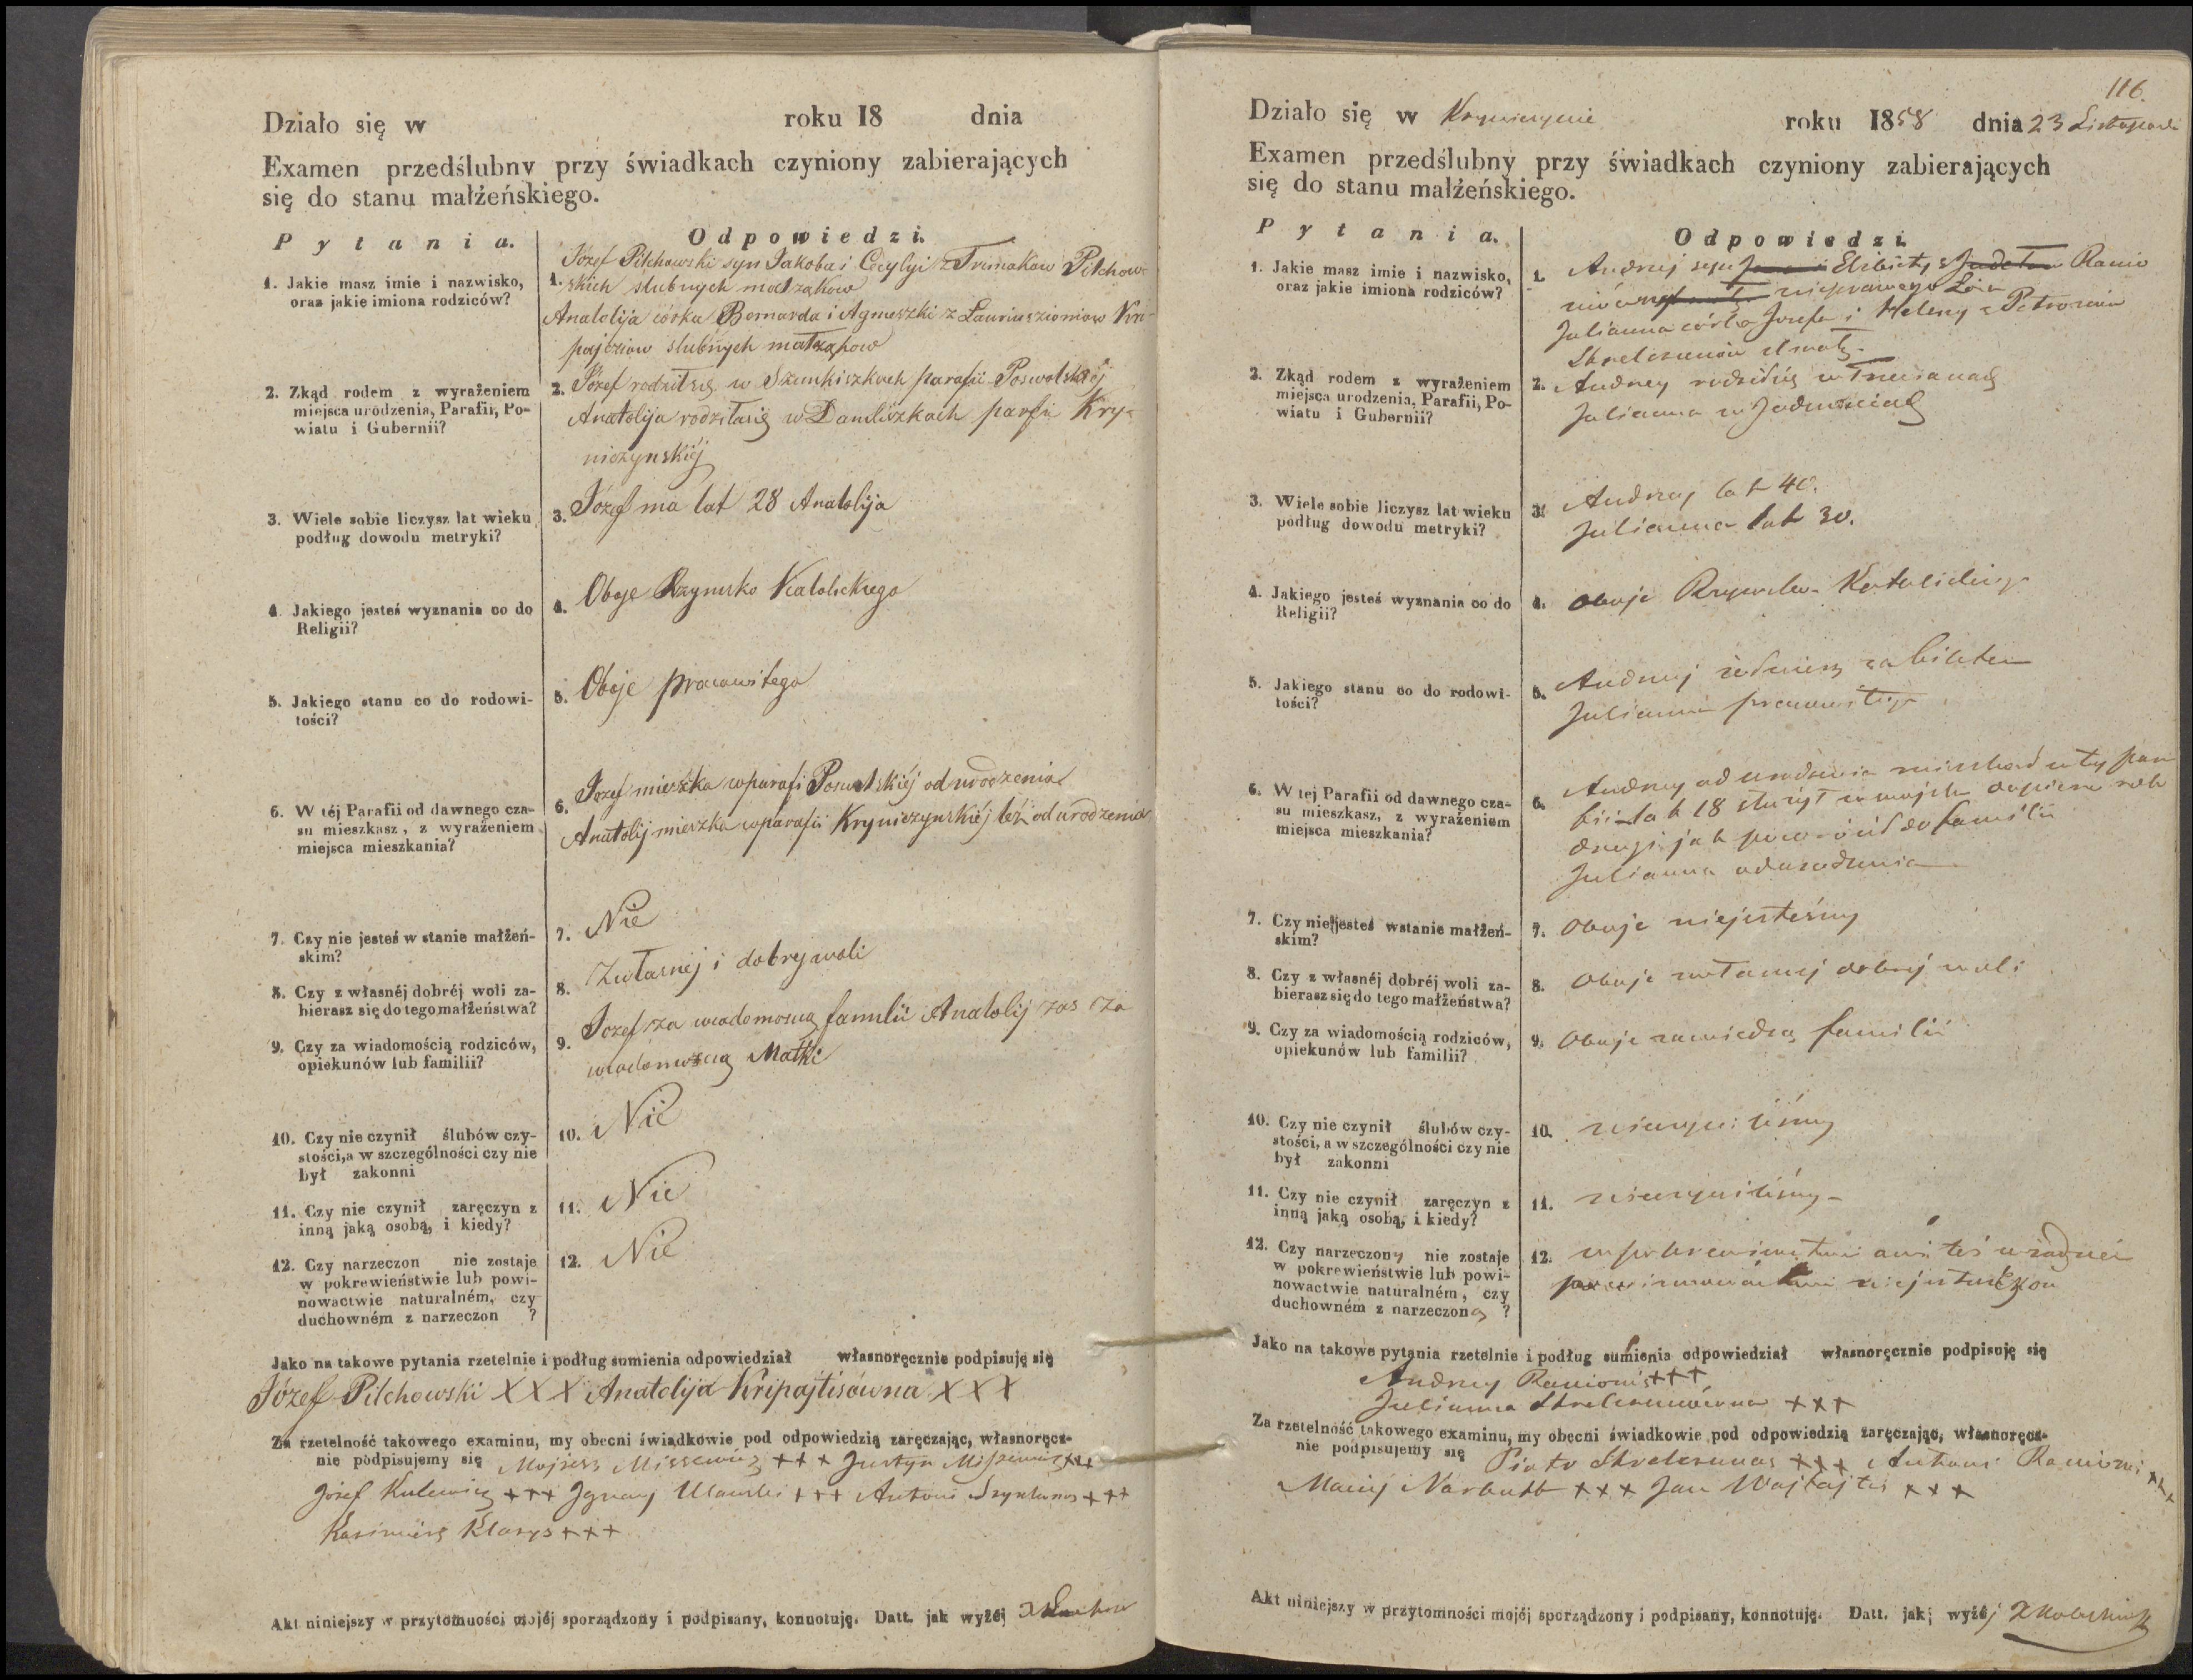 Działo się w roku 18 dnia
Examen przedślubny przy świadkach czyniony zabierających
się do stanu małżeńskiego.
Pytania. Odpowiedzi.
1. Jakie masz imie i nazwisko,
oraz jakie imiona rodziców?
1. Józef Pilchowski syn Jakoba i Cecylyi z Trimakow Pilchow-
skich slubnych małząkow
Anatolija córka Bernarda i Agneszki z Kri-
pajciow slubnych małrząkow
2. Zkąd rodem z wyrażeniem
miejsca urodzenia, Parafii, Po-
wiatu i Gubernii?
2. Józef rodził się w Szunkiszkach parafii Poswolskiéj
Anatolija rodziłasię w Daniliszkach parfii Kry-
niczynskiéj
3. Wiele sobie liczysz lat wieku
podług dowodu metryki?
3. Józef ma lat 28 Anatolija
4. Jakiego jesteś wyznania co do
Religii?
4. Oboje Rzymsko Katolickiego
5. Jakiego stanu co do rodowi-
tości?
5. Oboje pracowitego
6. W téj Parafii od dawnego cza-
su mieszkasz, z wyrażeniem
miejsca mieszkania?
6. Jozef mieszka wparafi Poswolskiéj od urodzenia
Anatolij mieszka wparafii Kryniczynskiéj też od urodzenia
7. Czy nie jesteś w stanie małżeń-
skim?
7. Nie
8. Czy z własnéj dobréj woli za-
bierasz się do tego małżeństwa?
8. Zwłasnéj i dobryj woli
9. Czy za wiadomością rodziców,
opiekunów lub familii?
9. Jozef za wiadomoscią familii Anatolij zas za
wiadomoscią Matki
10. Czy nie czynił ślubów czy-
stości, a w szczególności czy nie
był zakonni
10. Nie
11. Czy nie czynił zaręczyn z
inną jaką osobą, i kiedy?
11. Nie
12. Czy narzeczon nie zostaje
w pokrewieństwie lub powi-
nowactwie naturalném, czy
duchowném z narzeczon ?
12. Nie
Jako na takowe pytania rzetelnie i podług sumienia odpowiedział własnoręcznie podpisuję się
Józef Pilchowski X X X Anatolija Kripajtisówna X X X
Za rzetelność takowego examinu, my obecni świadkowie pod odpowiedzią zaręczając, własnoręcz-
nie podpisujemy się +++ Justyn +++
Józef Kulewicz +++ Ignacy +++ Antoni +++
Kazimierz Klasys +++
Akt niniejszy w przytomności mojéj sporządzony i podpisany, konnotuję. Datt. jak wyżéj
116.
Działo się w Krynicynie roku 1858 dnia 23 Listopada
Examen przedślubny przy świadkach czyniony zabierających
się do stanu małżeńskiego.
Pytania. Odpowiedzi.
1. Jakie masz imie i nazwisko,
oraz jakie imiona rodziców?
1. Andrzej syn Elżbiety z Ranio
nieprawego Łoża
Julianna córka Jozefa i Heleny z
2. Zkąd rodem z wyrażeniem
miejsca urodzenia, Parafii, Po-
wiatu i Gubernii?
2. Andrzey rodziłsię w
Julianna w
3. Wiele sobie liczysz lat wieku
podług dowodu metryki?
3. Andrzej lat 40.
Julianna lat 30.
4. Jakiego jesteś wyznania co do
Religii?
4. oboje Rzymsko-Katolickiego
5. Jakiego stanu co do rodowi-
tości?
5. Andrzej żołnierz za biletem
Julianna pracowitego
6. W tej Parafii od dawnego cza-
su mieszkasz, z wyrażeniem
miejsca mieszkania?
6. Andrzey od urodzenia mieszkał w tej para
fii lat 18 służył w wojsku dopiero rok
drugi jak powrócił do familii
Julianna od urodzenia
7. Czy nie jesteś wstanie małżeń-
skim?
7. oboje niejesteśmy
8. Czy z własnéj dobréj woli za-
bierasz się do tego małżeństwa?
8. oboje zwłasnej dobrej woli
9. Czy za wiadomością rodziców,
opiekunów lub familii?
9. oboje zawiedzą familii
10. Czy nie czynił ślubów czy-
stości, a w szczególności czy nie
był zakonni
10. nieczyniliśmy
11. Czy nie czynił zaręczyn z
inną jaką osobą, i kiedy?
11. nieczyniliśmy -
12. Czy narzeczony nie zostaje
w pokrewieństwie lub powi-
nowactwie naturalném, czy
duchowném z narzeczoną ?
12. w pokrewieństwie ani też w żadnem
Jako na takowe pytania rzetelnie i podług sumienia odpowiedział własnoręcznie podpisuję się
Andrzey Ranionis +++
Julianna +++
Za rzetelność takowego examinu, my obecni świadkowie pod odpowiedzią zaręczając, własnoręcz-
nie podpisujemy się Piotr +++ Antoni Ranionis +++
Maciej Narbutt +++ Jan Wajtajtis +++
Akt niniejszy w przytomności mojéj sporządzony i podpisany, konnotuję. Datt. jak wyżéj